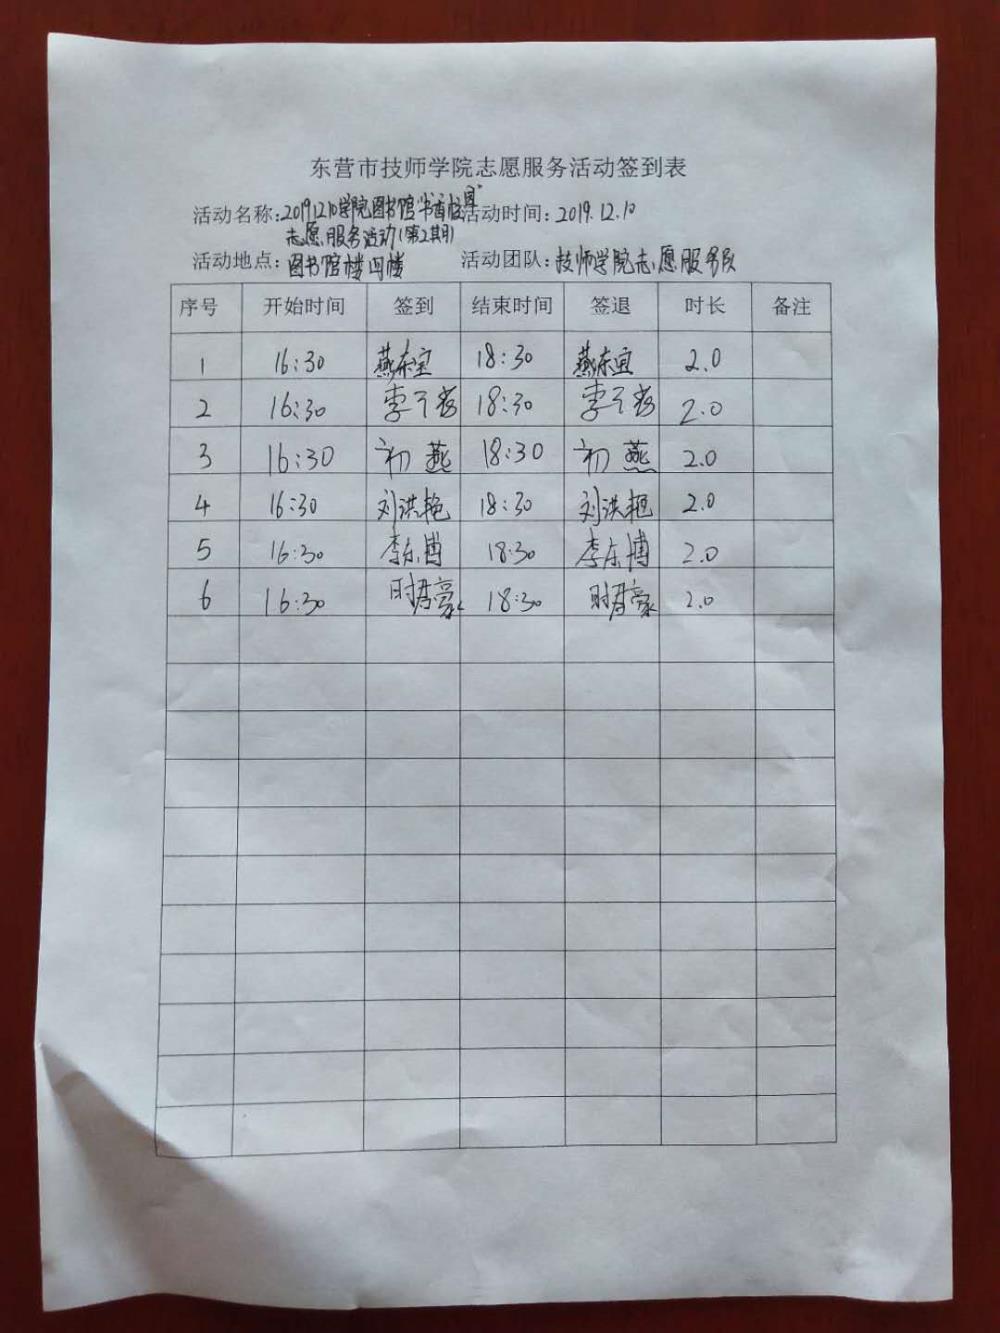 东营市技师学院志愿服务活动签到表
活动名称:20191210学院图书馆"书香校园" 活动时间:2019.12.10
志愿服务活动(第2期)
活动地点:图书馆楼四楼 活动团队:技师学院志愿服务队
序号 开始时间 签到 结束时间 签退 时长 备注
1 16:30 燕东宜 18:30 燕东宜 2.0
2 16:30 李 18:30 李 2.0
3 16:30 初燕 18:30 初燕 2.0
4 16:30 刘洪艳 18:30 刘洪艳 2.0
5 16:30 李东博 18:30 李东博 2.0
6 16:30 时君豪 18:30 时君豪 2.0